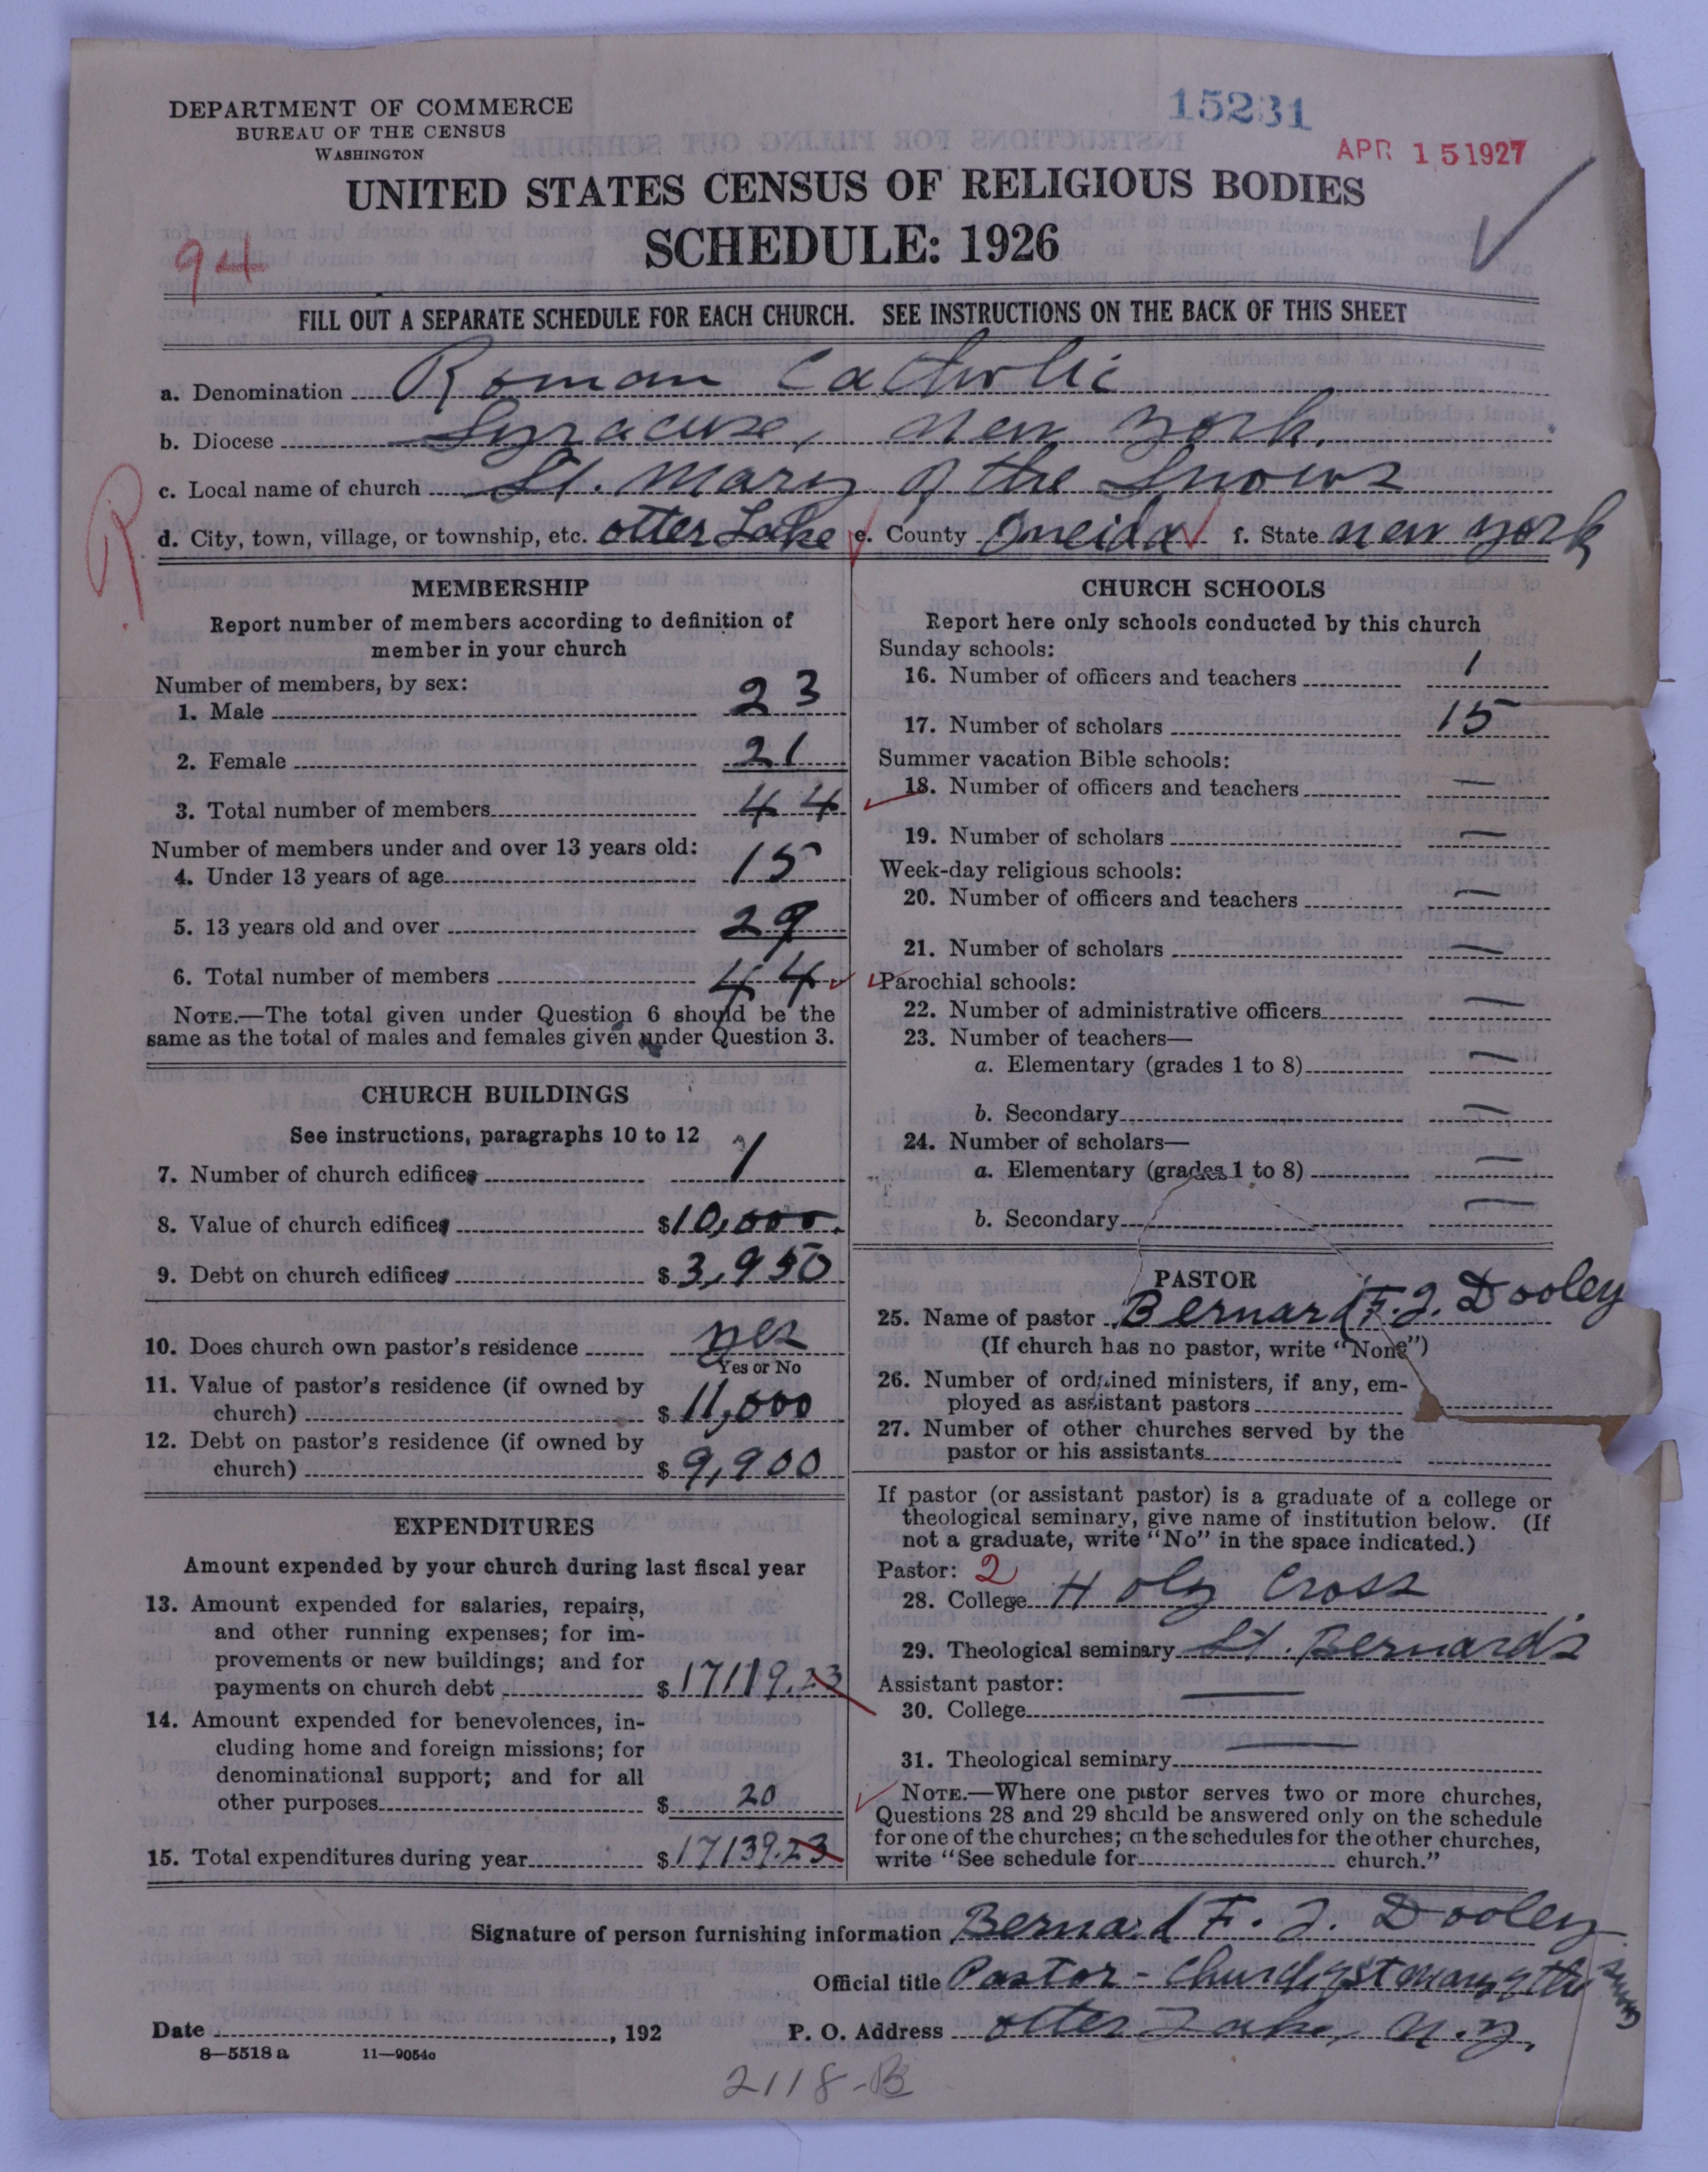 DEPARTMENT OF COMMERCE
BUREAU OF THE CENSUS
WASHINGTON
15231
APR 15 1927
UNITED STATES CENSUS OF RELIGIOUS BODIES
SCHEDULE: 1926
94
FILL OUT A SEPARATE SCHEDULE FOR EACH CHURCH. SEE INSTRUCTIONS ON THE BACK OF THIS SHEET
a. Denomination Roman Catholic
b. Diocese Syracuse, New York.
c. Local name of church St. Mary of the Snows
R
d. City, town, village, or township, etc. Otter Lake e. County Oneida f. State New York
MEMBERSHIP
Report number of members according to definition of
member in your church
Number of members, by sex:
1. Male 23
2. Female 21
3. Total number of members 44
Number of members under and over 13 years old:
4. Under 13 years of age 15
5. 13 years old and over 29
6. Total number of members 44
NOTE.—The total given under Question 6 should be the
same as the total of males and females given under Question 3.
CHURCH BUILDINGS
See instructions, paragraphs 10 to 12
7. Number of church edifices 1
8. Value of church edifices $10,000.
9. Debt on church edifices $3,950
10. Does church own pastor's residence yes
Yes or No
11. Value of pastor's residence (if owned by
church) $11,000
12. Debt on pastor's residence (if owned by
church) $9,900
EXPENDITURES
Amount expended by your church during last fiscal year
13. Amount expended for salaries, repairs,
and other running expenses; for im-
provements or new buildings; and for
payments on church debt $17119.23
14. Amount expended for benevolences, in-
cluding home and foreign missions; for
denominational support; and for all
other purposes $20
15. Total expenditures during year $17139.23
CHURCH SCHOOLS
Report here only schools conducted by this church
Sunday schools:
16. Number of officers and teachers 1
17. Number of scholars 15
Summer vacation Bible schools:
18. Number of officers and teachers —
19. Number of scholars —
Week-day religious schools:
20. Number of officers and teachers —
21. Number of scholars —
Parochial schools:
22. Number of administrative officers —
23. Number of teachers—
a. Elementary (grades 1 to 8) —
b. Secondary —
24. Number of scholars—
a. Elementary (grades 1 to 8) —
b. Secondary —
PASTOR
25. Name of pastor Bernard F. J. Dooley
(If church has no pastor, write "None")
26. Number of ordained ministers, if any, em-
ployed as assistant pastors
27. Number of other churches served by the
pastor or his assistants
If pastor (or assistant pastor) is a graduate of a college or
theological seminary, give name of institution below. (If
not a graduate, write "No" in the space indicated.)
Pastor: 2
28. College Holy Cross
29. Theological seminary St. Bernard's
Assistant pastor:
30. College —
31. Theological seminary —
NOTE.—Where one pastor serves two or more churches,
Questions 28 and 29 should be answered only on the schedule
for one of the churches; on the schedules for the other churches,
write "See schedule for church."
Signature of person furnishing information Bernard F. J. Dooley
Official title Pastor - Church of St Mary of the Snows
Date , 192 P. O. Address Otter Lake, N.Y.
8—5518 a 11—9054c
2118-B